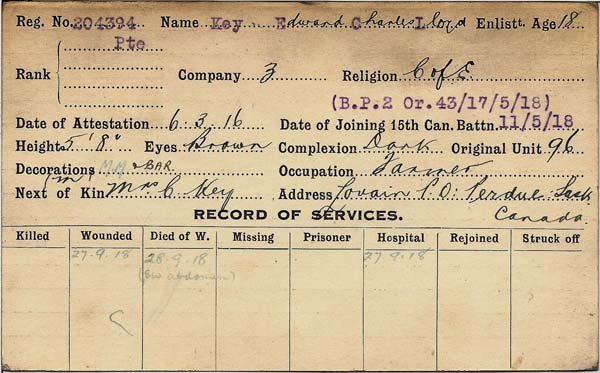 Reg. No. 204394 Name Key Edward Charles Lloyd Enlistt. Age 18
Pte
Rank Company 3 Religion C of E
(B.P.2 Or.43/17/5/18)
Date of Attestation 6.3.16 Date of Joining 15th Can. Battn. 11/5/18
Height 5'8" Eyes Brown Complexion Dark Original Unit 96
Decorations MM & BAR Occupation Farmer
Next of Kin (m) Mrs C. Key Address Lovain P.O. Perdue Sask
Canada
RECORD OF SERVICES.
Killed Wounded Died of W. Missing Prisoner Hospital Rejoined Struck off
27-9-18 28-9-18 27-9-18
(GW abdomen)